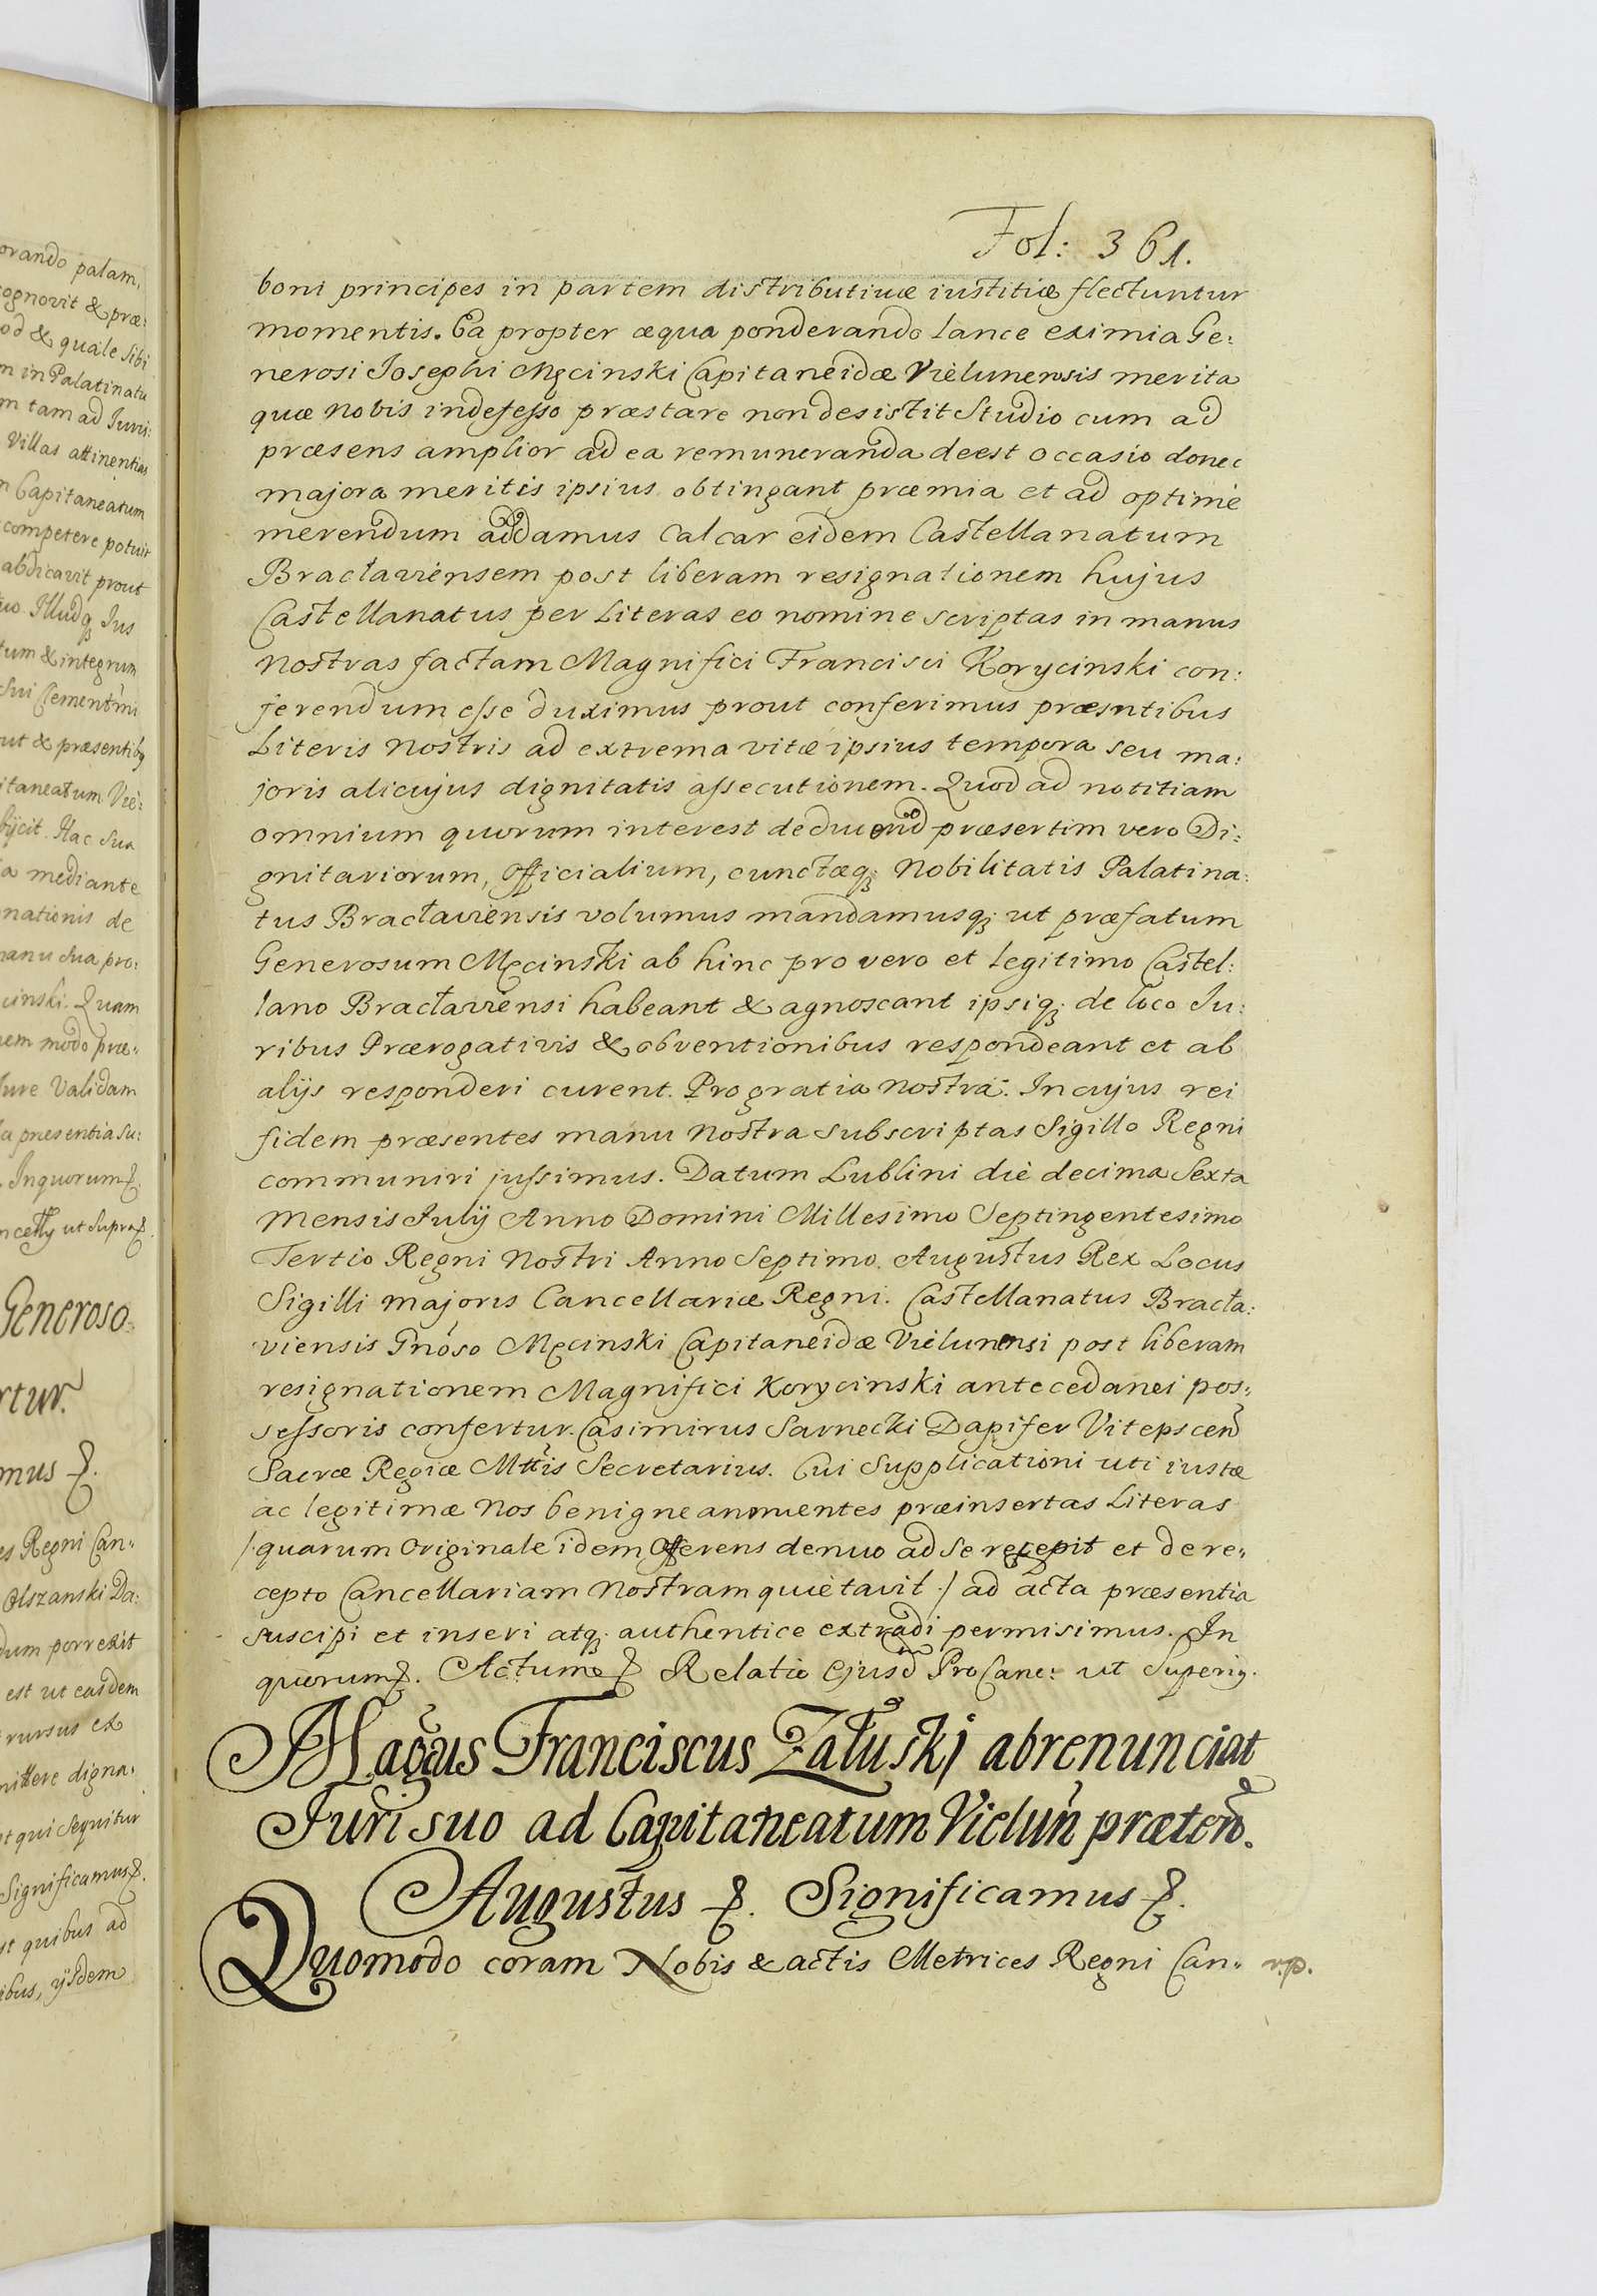 orando palam,
cognovit & præ:
od & quale sibi
m in Palatinatu
m tam ad Juri:
Villas attinentias
n Capitaneatum
competere potuit
abdicavit prout
uo. Illudq; Jus
tum & integrum
sui
ut & præsentibꝫ
itaneatum Vie:
bijcit. Hac sua
a mediante
nationis de
manu sua pro:
cinski. Quam
em modo præ„
Jure Validam
a præsentia su:
. In quorum &.
ut supra &.
Generoso
rtur.
mus &.
es Regni Can„
Olszanski Da:
dum porrexit
est ut easdem
rursus ex
mittere digna„
t qui sequitur
Significamus &.
st quibus ad
ibus, ijsdem
Fol: 361.
boni principes in partem distributivæ iustitiæ flectuntur
momentis. Ea propter æqua ponderando lance eximia Ge:
nerosi Josephi Męcinski Capitaneidæ Vielunensis merita
quæ nobis indefesso præstare non desistit Studio cum ad
præsens amplior ad ea remuneranda deest occasio donec
majora meritis ipsius obtingant præmia et ad optime
merendum addamus calcar eidem Castellanatum
Bracłaviensem post liberam resignationem hujus
Castellanatus per Literas eo nomine scriptas in manus
nostras factam Magnifici Francisci Korycinski con:
ferendum esse duximus prout conferimus præsntibus
Literis nostris ad extrema vitæ ipsius tempora seu ma:
joris alicujus dignitatis assecutionem. Quod ad notitiam
omnium quorum interest deducend præsertim vero Di:
gnitariorum, Officialium, cunctæq; Nobilitatis Palatina:
tus Bracłaviensis volumus mandamusq; ut præfatum
Generosum Męcinski ab hinc pro vero et legitimo Castel:
lano Bracłaviensi habeant & agnoscant ipsiq; de loco Ju:
ribus Prærogativis & obventionibus respondeant et ab
alijs responderi curent. Pro gratia nostra. In cujus rei
fidem præsentes manu nostra subscriptas Sigillo Regni
communiri jussimus. Datum Lublini die decima Sexta
mensis Julij Anno Domini Millesimo Septingentesimo
Tertio Regni nostri Anno Septimo. Augustus Rex Locus
Sigilli majoris Cancellariæ Regni. Castellanatus Bracła:
viensis Gnoso Męcinski Capitaneidæ Vielunensi post liberam
resignationem Magnifici Korycinski antecedanei pos„
sessoris confertur. Casimirus Sarnecki Dapifer Vitepscen
Sacræ Regiæ Mttis Secretarius. Cui Supplicationi uti iustæ
ac legitimæ Nos benigne annuentes præinsertas Literas
/: quarum Originale idem Offerens denuo ad se recepit et de re„
cepto Cancellariam nostram quietavit :/ ad acta præsentia
suscipi et inseri atq; authentice extradi permisimus. In
quorum &. Actum & Relatio Ejusd ProCanc: ut Superiꝰ.
Magcus Franciscus Załuskj abrenunciat
Juri suo ad Capitaneatum Vielun præten.
Augustus &. Significamus &.
Quomodo coram Nobis & actis Metrices Regni Can„ v.p.